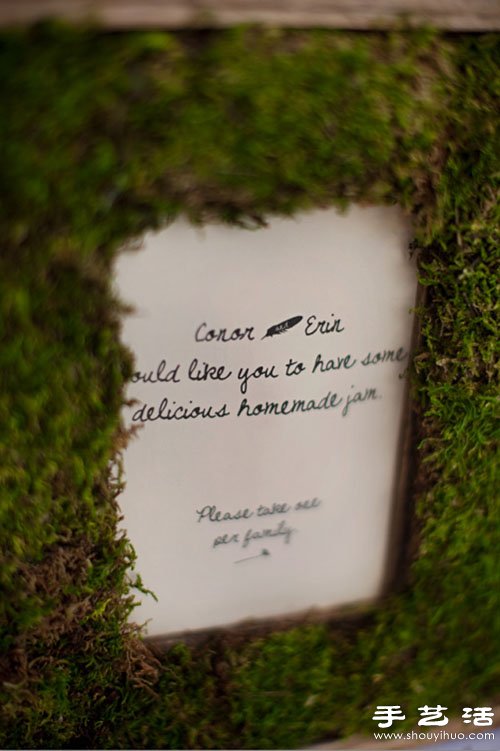 Conor AND Erin
ould like you to have some
delicious homemade jam.
Please take one
per family
手艺活
www.shouyihuo.com